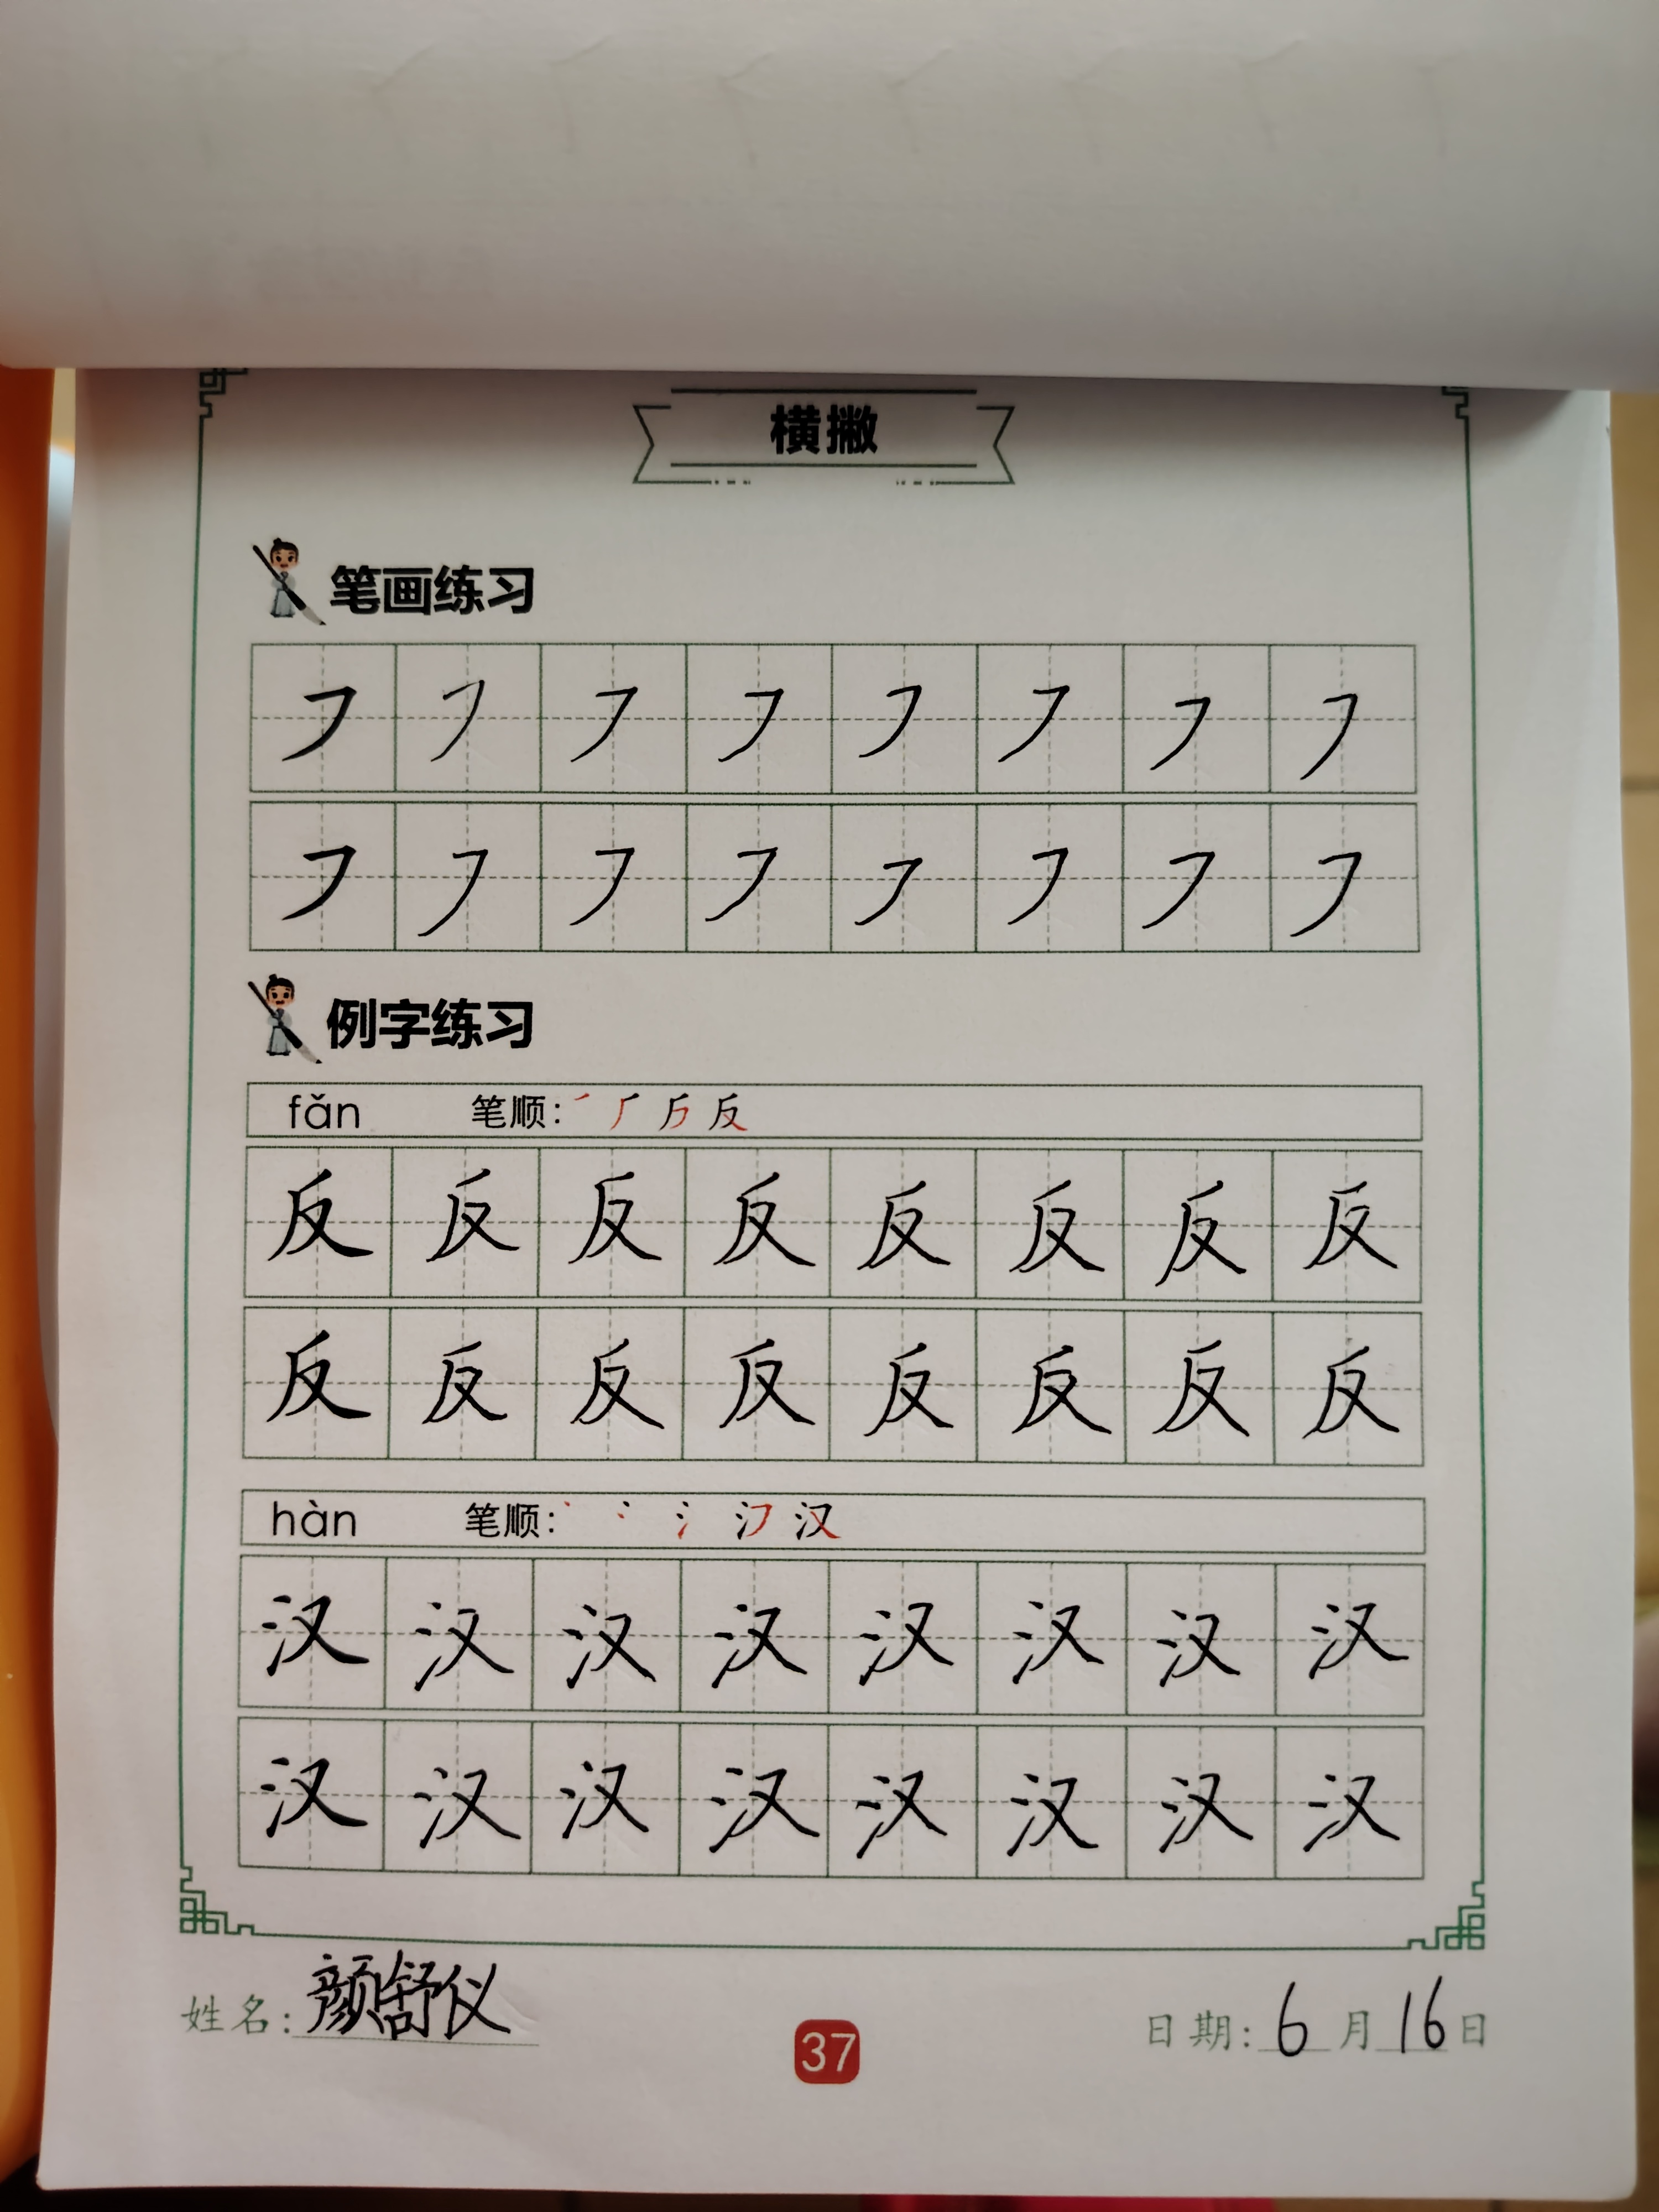 横撇
笔画练习
㇇ ㇇ ㇇ ㇇ ㇇ ㇇ ㇇ ㇇
㇇ ㇇ ㇇ ㇇ ㇇ ㇇ ㇇ ㇇
例字练习
fǎn 笔顺: ㇒ 厂 反
反 反 反 反 反 反 反 反
反 反 反 反 反 反 反 反
hàn 笔顺: 丶 冫 氵 汉
汉 汉 汉 汉 汉 汉 汉 汉
汉 汉 汉 汉 汉 汉 汉 汉
姓名: 颜舒仪 37 日期: 6 月 16 日